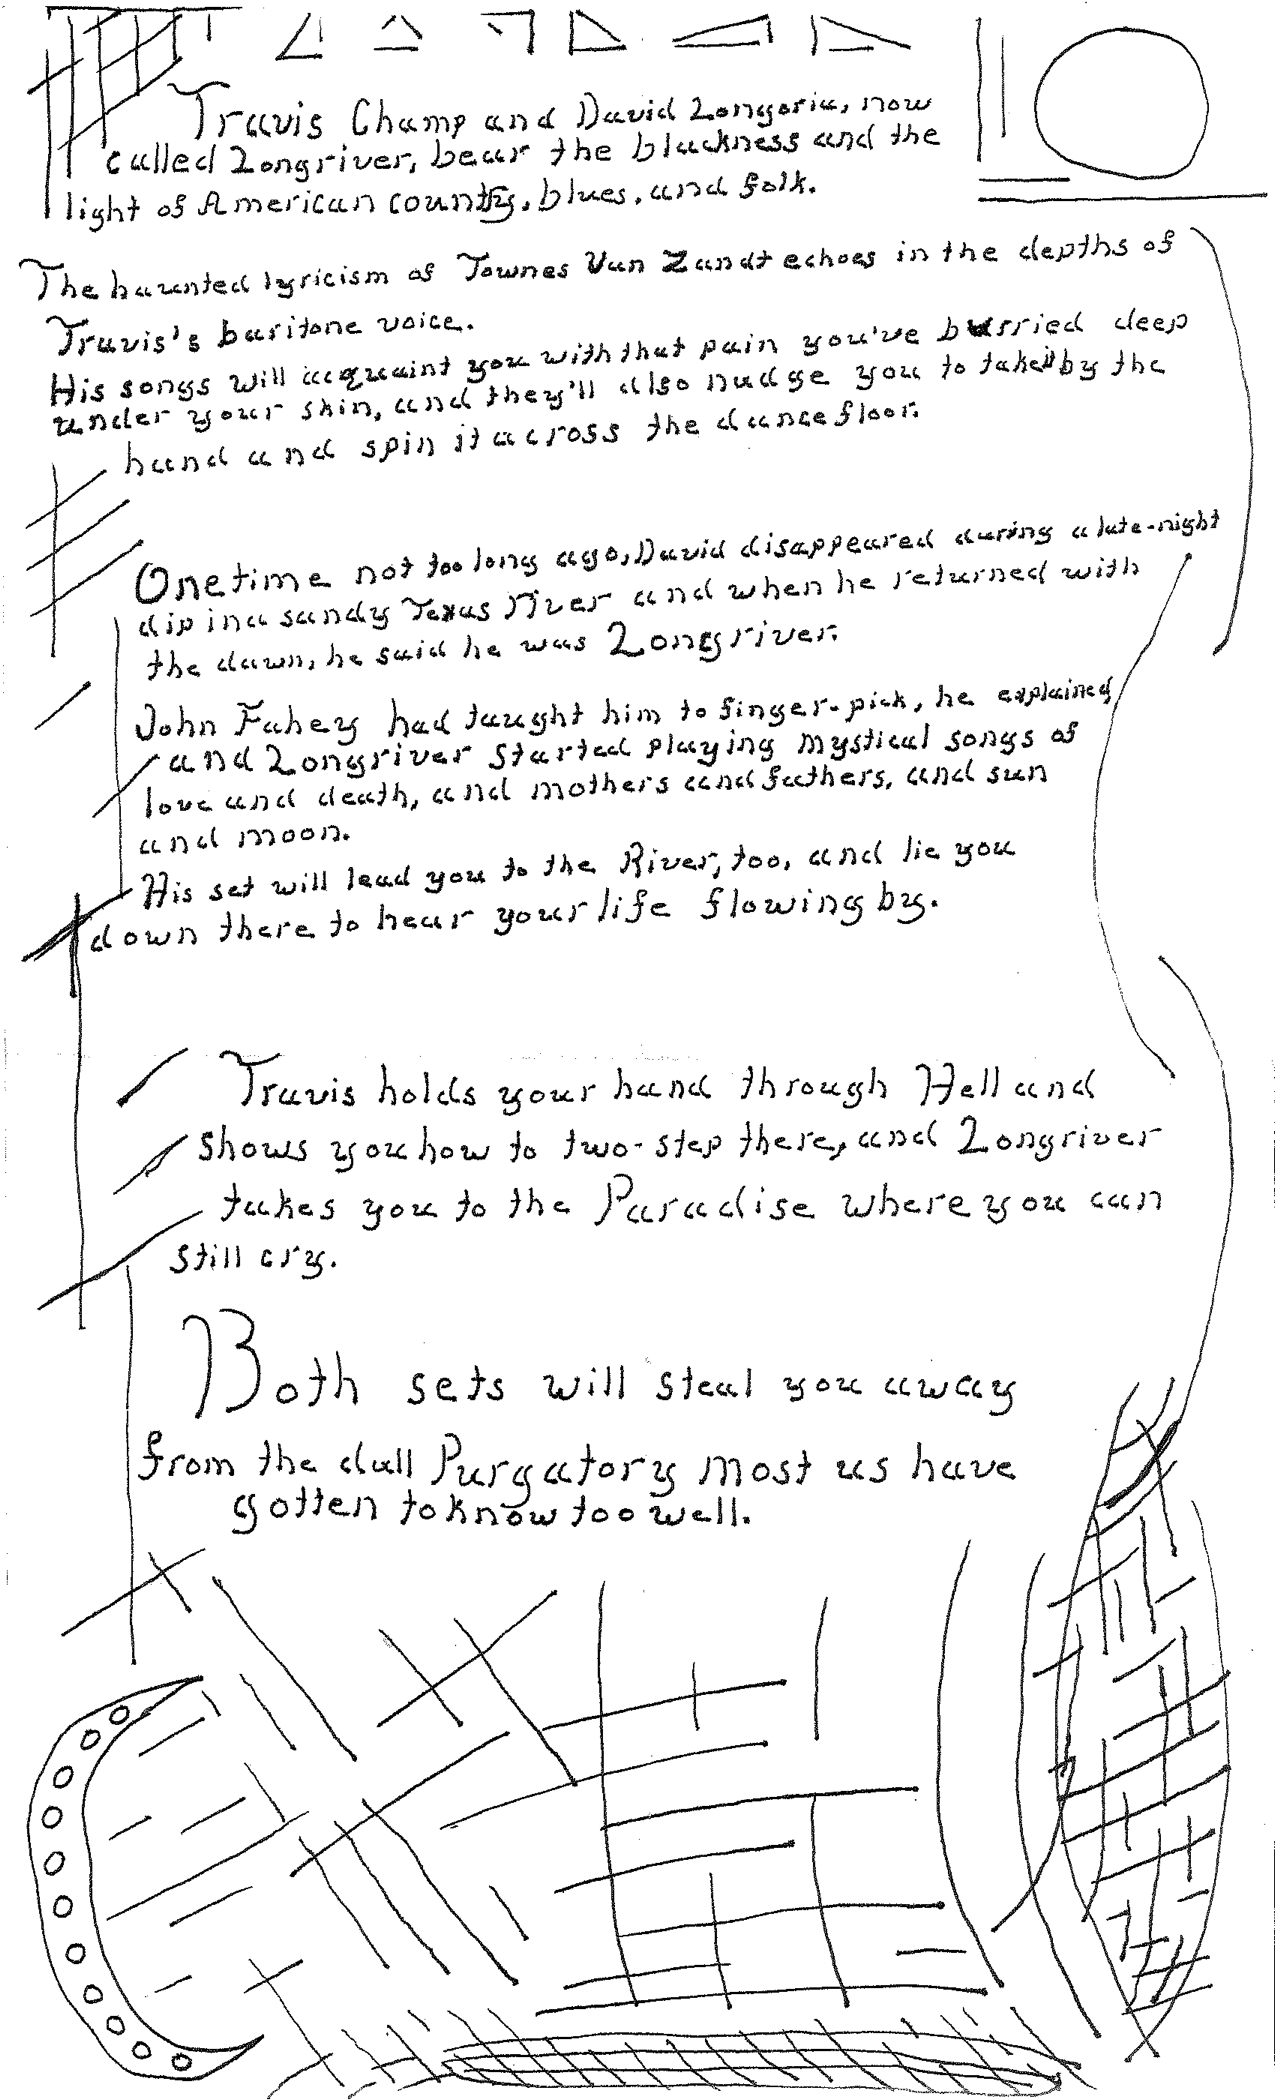 Travis Champ and David Longoria, now
called Longriver, bear the blackness and the
light of American country, blues, and folk.
The haunted lyricism of Townes Van Zandt echoes in the depths of
Travis's baritone voice.
His songs will acquaint you with that pain you've burried deep
under your skin, and they'll also nudge you to take it by the
hand and spin it across the dance floor.
One time not too long ago, David disappeared during a late-night
dip in a sandy Texas river and when he returned with
the dawn, he said he was Longriver.
John Fahey had taught him to finger-pick, he explained,
and Longriver started playing mystical songs of
love and death, and mothers and fathers, and sun
and moon.
His set will lead you to the River, too, and lie you
down there to hear your life flowing by.
Travis holds your hand through Hell and
shows you how to two-step there, and Longriver
takes you to the Paradise where you can
still cry.
Both sets will steal you away
from the dull Purgatory most us have
gotten to know too well.